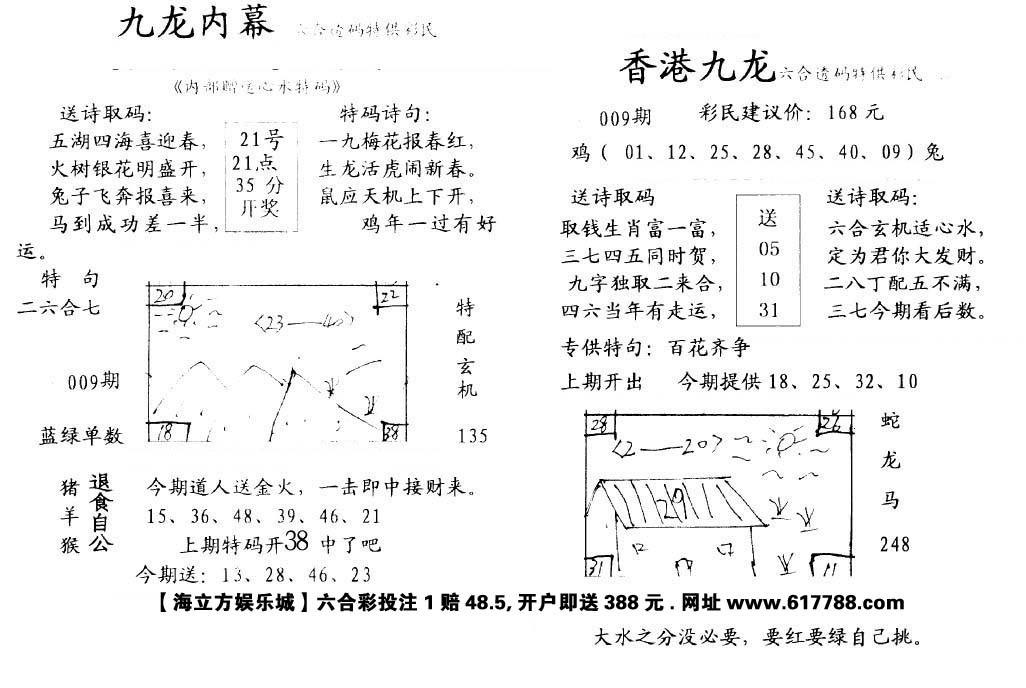 九龙内幕 六合透码特供彩民
《内部赠送心水特码》
送诗取码：
五湖四海喜迎春，
火树银花明盛开，
兔子飞奔报喜来，
马到成功差一半，
21号
21点
35 分
开奖
特码诗句：
一九梅花报春红，
生龙活虎闹新春。
鼠应天机上下开，
鸡年一过有好
运。
特 句
二六合七
009期
蓝绿单数
20
22
〈23——40〉
18
38
特
配
玄
机
135
猪
羊
猴
退
食
自
公
今期道人送金火，一击即中接财来。
15、36、48、39、46、21
上期特码开38 中了吧
今期送：13、28、46、23
香港九龙 六合透码特供彩民
009期 彩民建议价：168 元
鸡（ 01、12、25、28、45、40、09）兔
送诗取码
取钱生肖富一富，
三七四五同时贺，
九字独取二来合，
四六当年有走运，
送
05
10
31
送诗取码：
六合玄机适心水，
定为君你大发财。
二八丁配五不满，
三七今期看后数。
专供特句：百花齐争
上期开出 今期提供 18、25、32、10
28
26
〈2——20〉
29
31
11
蛇
龙
马
248
【海立方娱乐城】六合彩投注 1 赔 48.5, 开户即送 388 元 . 网址 www.617788.com
大水之分没必要，要红要绿自己挑。